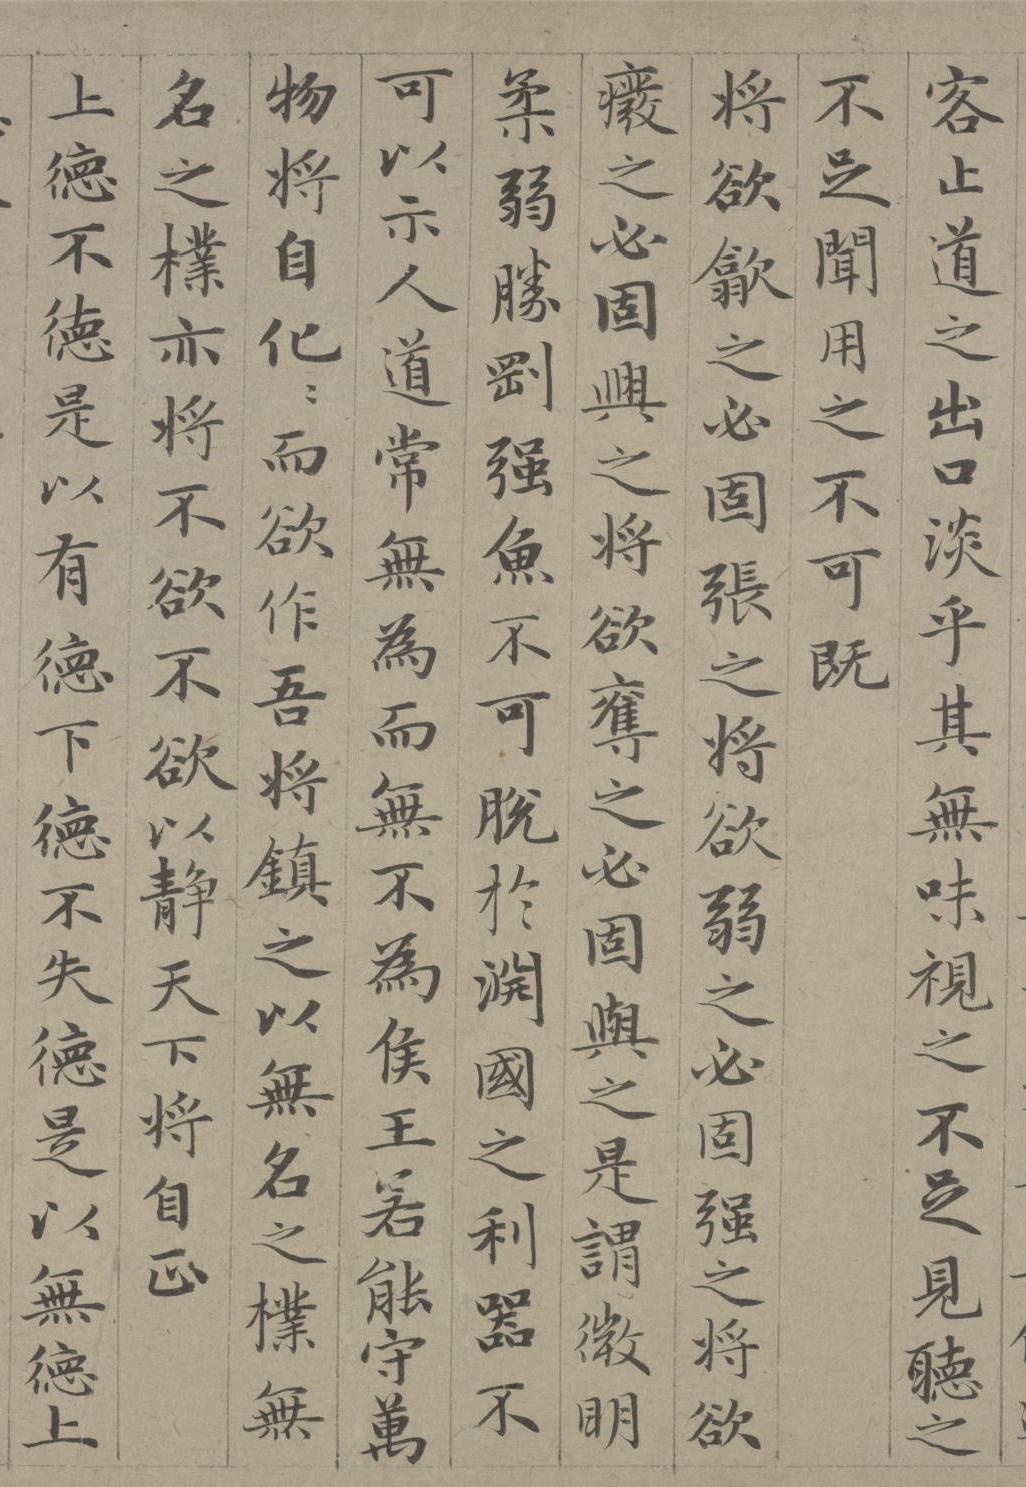 客止道之出口淡乎其無味視之不足見聽之
不足聞用之不可既
将欲歙之必固張之将欲弱之必固强之将欲
癈之必固興之将欲奪之必固與之是謂微明
柔弱勝剛强魚不可脫於淵國之利器不
可以示人道常無為而無不為侯王若能守萬
物将自化〻而欲作吾将鎮之以無名之樸無
名之樸亦将不欲不欲以静天下将自正
上德不德是以有德下德不失德是以無德上